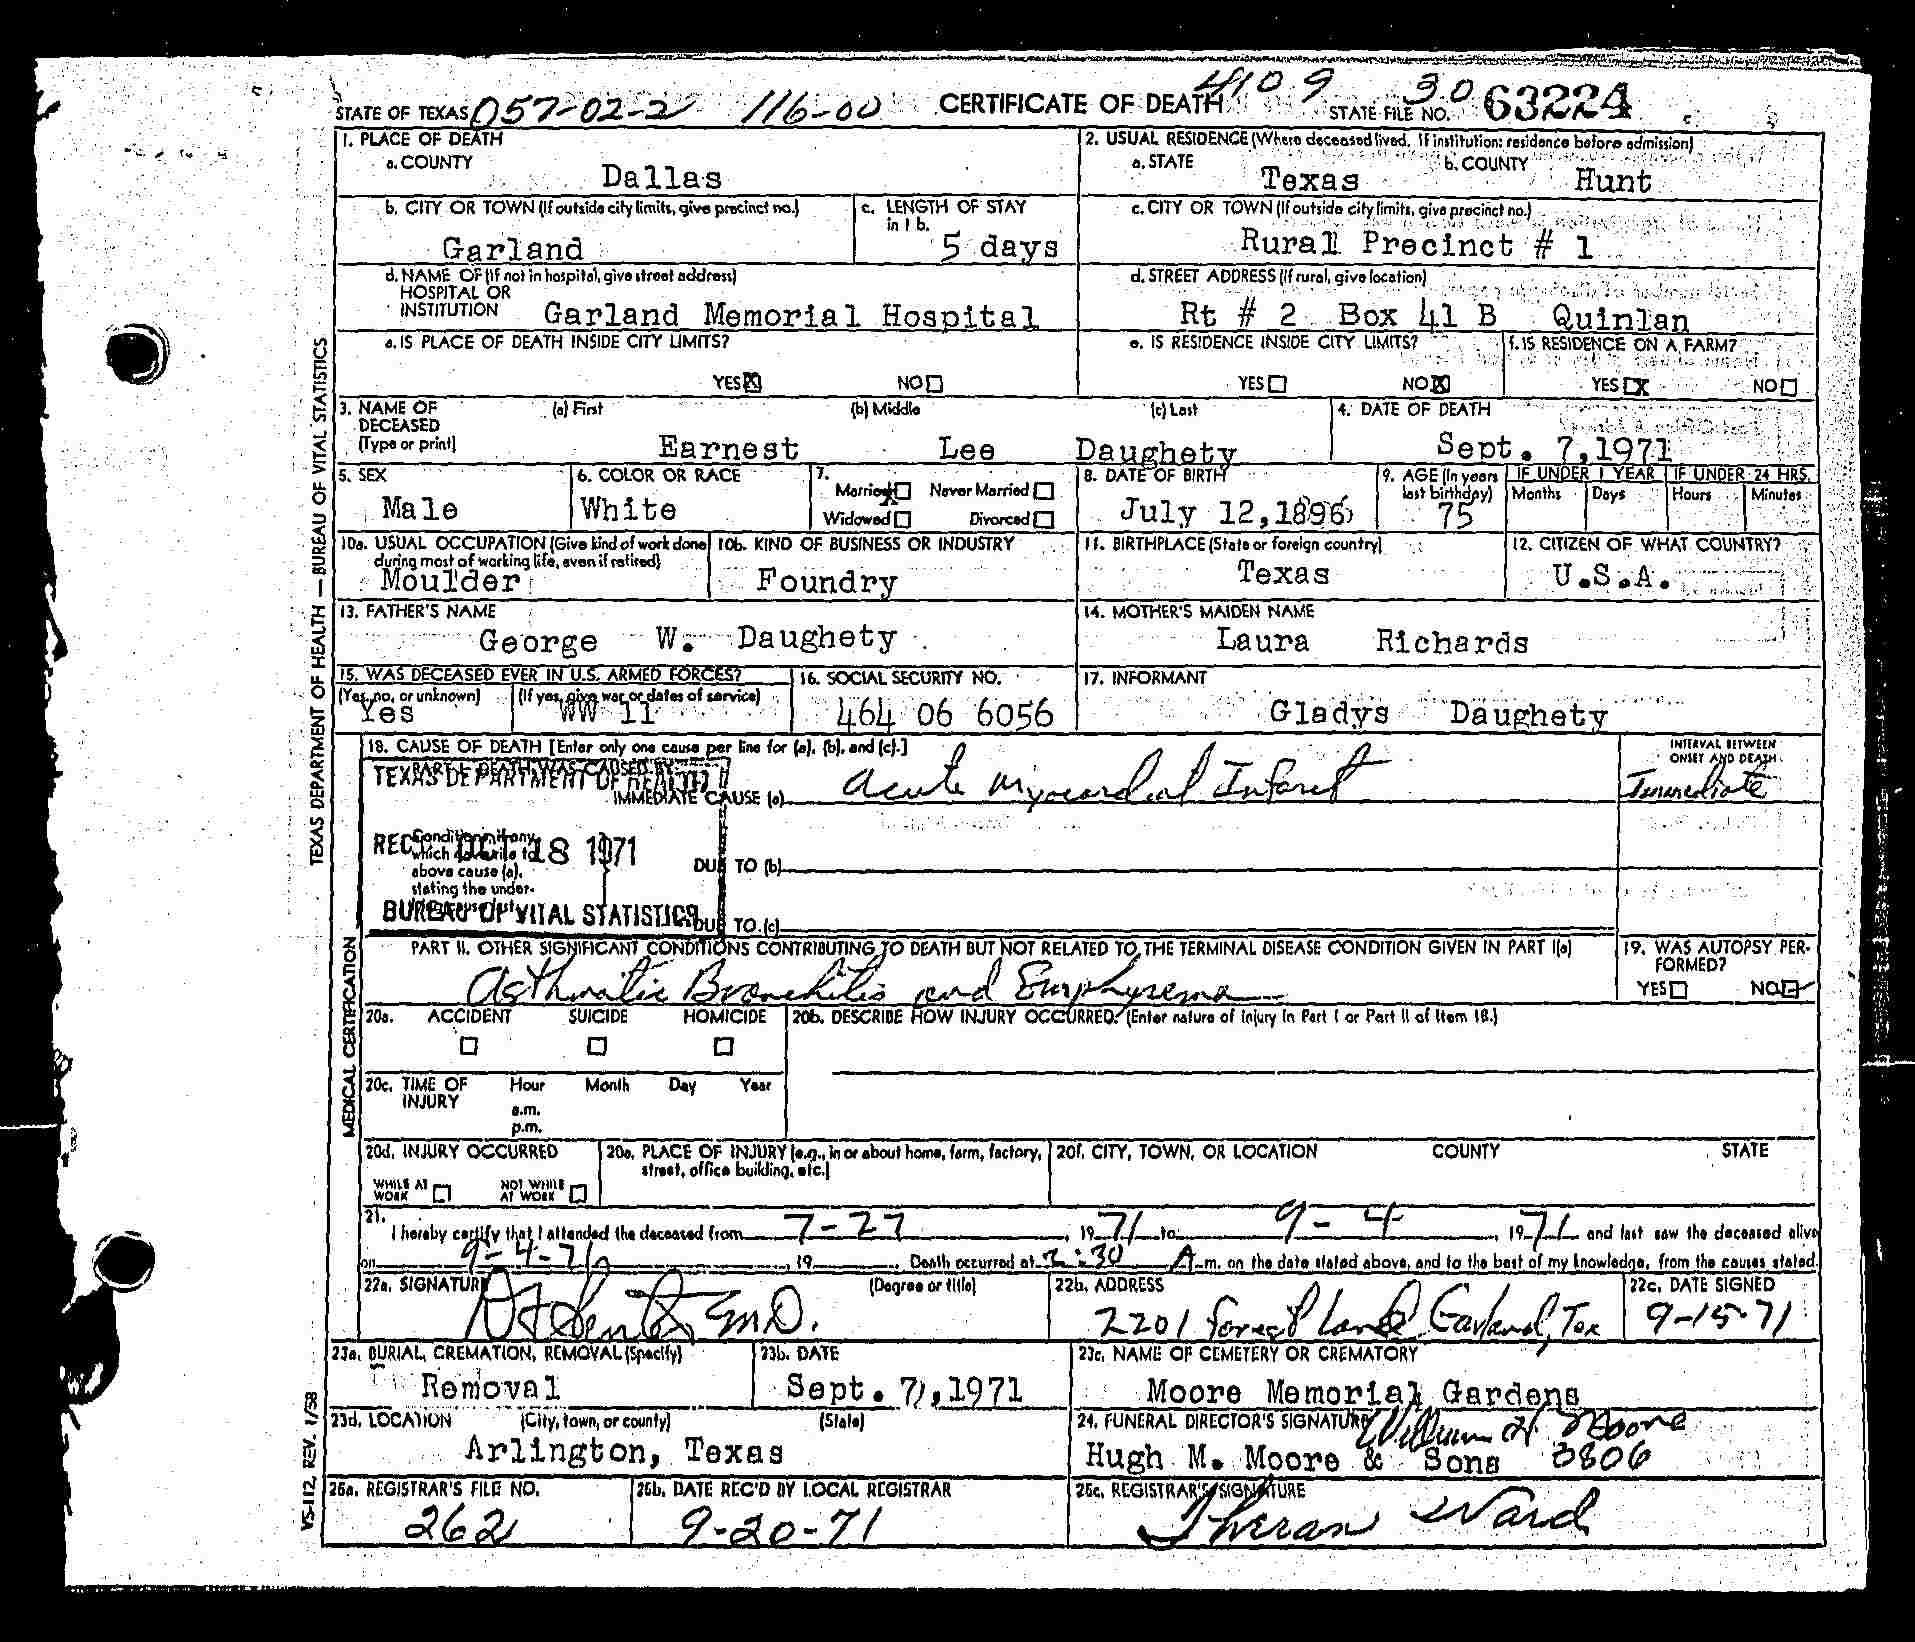 4109 30
STATE OF TEXAS 057-02-2 116-00 CERTIFICATE OF DEATH STATE FILE NO. 63224
1. PLACE OF DEATH
a. COUNTY
Dallas
2. USUAL RESIDENCE (Where deceased lived. If institution: residence before admission)
a. STATE b. COUNTY
Texas Hunt
b. CITY OR TOWN (If outside city limits, give precinct no.)
Garland
c. LENGTH OF STAY
in 1 b.
5 days
c. CITY OR TOWN (If outside city limits, give precinct no.)
Rural Precinct # 1
d. NAME OF (If not in hospital, give street address)
HOSPITAL OR
INSTITUTION Garland Memorial Hospital
d. STREET ADDRESS (If rural, give location)
Rt # 2 Box 41 B Quinlan
e. IS PLACE OF DEATH INSIDE CITY LIMITS?
YES X NO
e. IS RESIDENCE INSIDE CITY LIMITS?
YES NO X
f. IS RESIDENCE ON A FARM?
YES X NO
3. NAME OF
DECEASED
(Type or print)
(a) First (b) Middle (c) Last
Earnest Lee Daughety
4. DATE OF DEATH
Sept. 7,1971
5. SEX
Male
6. COLOR OR RACE
White
7.
Married X Never Married
Widowed Divorced
8. DATE OF BIRTH
July 12,1896
9. AGE (In years
last birthday)
75
IF UNDER 1 YEAR IF UNDER 24 HRS.
Months Days Hours Minutes
10a. USUAL OCCUPATION (Give kind of work done
during most of working life, even if retired)
Moulder
10b. KIND OF BUSINESS OR INDUSTRY
Foundry
11. BIRTHPLACE (State or foreign country)
Texas
12. CITIZEN OF WHAT COUNTRY?
U.S.A.
13. FATHER'S NAME
George W. Daughety
14. MOTHER'S MAIDEN NAME
Laura Richards
15. WAS DECEASED EVER IN U.S. ARMED FORCES?
(Yes, no, or unknown) (If yes, give war or dates of service)
Yes WW 11
16. SOCIAL SECURITY NO.
464 06 6056
17. INFORMANT
Gladys Daughety
18. CAUSE OF DEATH [Enter only one cause per line for (a), (b), and (c).]
PART I. DEATH WAS CAUSED BY:
TEXAS DEPARTMENT OF HEALTH
IMMEDIATE CAUSE (a) Acute Myocardial Infarct
INTERVAL BETWEEN
ONSET AND DEATH
Immediate
REC'D OCT 18 1971
Conditions, if any,
which gave rise to
above cause (a),
stating the under-
DUE TO (b)
BUREAU OF VITAL STATISTICS
DUE TO (c)
PART II. OTHER SIGNIFICANT CONDITIONS CONTRIBUTING TO DEATH BUT NOT RELATED TO THE TERMINAL DISEASE CONDITION GIVEN IN PART I(a)
Asthmatic Bronchitis and Emphysema
19. WAS AUTOPSY PER-
FORMED?
YES NO
20a. ACCIDENT SUICIDE HOMICIDE
20b. DESCRIBE HOW INJURY OCCURRED. (Enter nature of injury in Part I or Part II of Item 18.)
20c. TIME OF
INJURY
Hour Month Day Year
a.m.
p.m.
20d. INJURY OCCURRED
WHILE AT
WORK
NOT WHILE
AT WORK
20e. PLACE OF INJURY (e.g., in or about home, farm, factory,
street, office building, etc.)
20f. CITY, TOWN, OR LOCATION COUNTY STATE
21.
I hereby certify that I attended the deceased from 7-27, 1971 to 9-4, 1971 and last saw the deceased alive
on 9-4-71, 19 . Death occurred at 2:30 A m. on the date stated above, and to the best of my knowledge, from the causes stated.
22a. SIGNATURE (Degree or title)
M.D.
22b. ADDRESS
2201 Forest Lane Garland, Tex
22c. DATE SIGNED
9-15-71
23a. BURIAL, CREMATION, REMOVAL (Specify)
Removal
23b. DATE
Sept. 7,1971
23c. NAME OF CEMETERY OR CREMATORY
Moore Memorial Gardens
23d. LOCATION (City, town, or county) (State)
Arlington, Texas
24. FUNERAL DIRECTOR'S SIGNATURE William H. Moore
Hugh M. Moore & Sons 3806
25a. REGISTRAR'S FILE NO.
262
25b. DATE REC'D BY LOCAL REGISTRAR
9-20-71
25c. REGISTRAR'S SIGNATURE
Theran Ward
TEXAS DEPARTMENT OF HEALTH — BUREAU OF VITAL STATISTICS
MEDICAL CERTIFICATION
VS-112, REV. 1/58